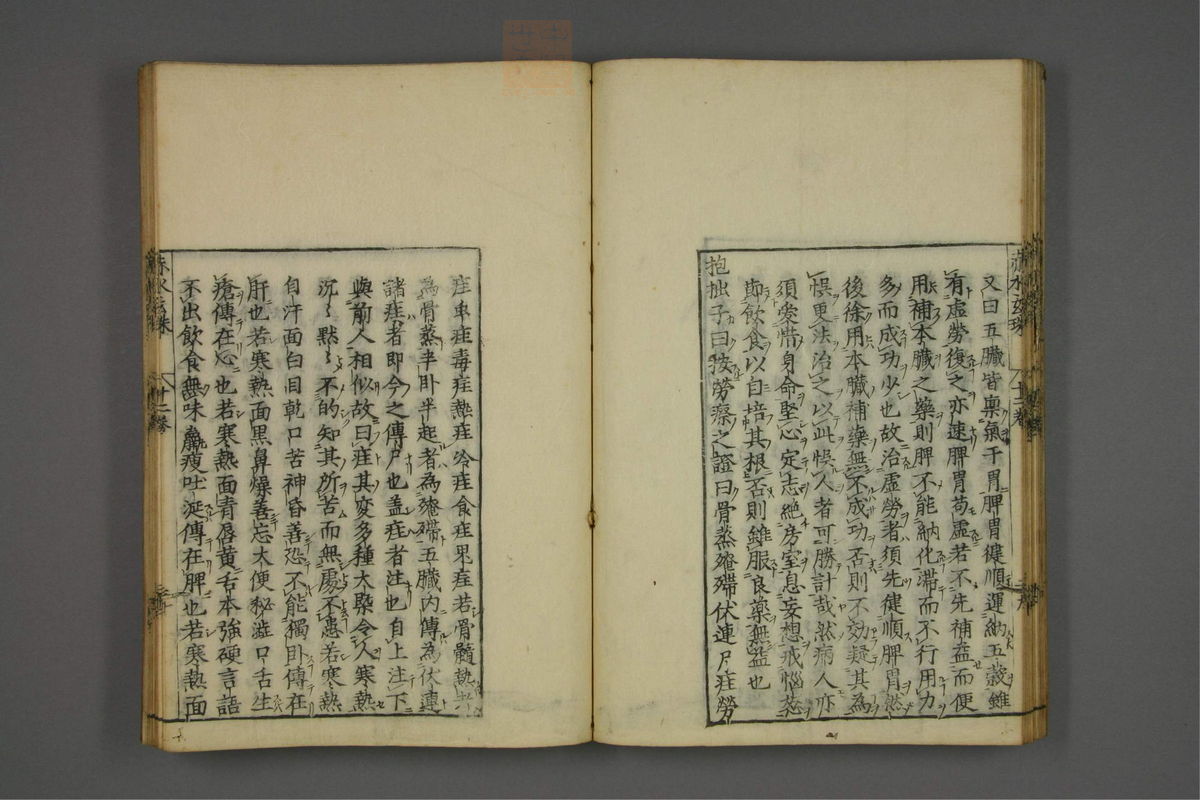 又曰五臟皆稟氣于胃脾胃健順運納五穀雖
有虛勞復之亦速脾胃苟虛若不先補益而便
用補本臟之藥則脾不能納化滯而不行用力
多而成功少也故治虛勞者須先健順脾胃然
後徐用本臟補藥無不成功否則不効疑其為
悞更法治之以此悞人者可勝計哉然病人亦
須愛惜身命堅心定志絕房室息妄想戒惱怒
節飲食以自培其根否則雖服良藥無益也
抱拙子曰按勞瘵之證曰骨蒸殗殜伏連尸疰勞
疰虫疰毒疰熱疰冷疰食疰鬼疰若骨髓熱
為骨蒸半卧半起者為殗殜五臟內傳為伏連
諸疰者即今之傳尸也盖疰者注也自上注下
與前人相似故曰疰其变多種大槩令人寒熱
沉〻默〻不的知其所苦而無處不惡若寒熱
自汗面白目乾口苦神昏善恐不能獨卧傳在
肝也若寒熱面黑鼻燥善忘大便秘澁口舌生
瘡傳在心也若寒熱面青唇黃舌本強硬言語
不出飲食無味羸瘦吐涎傳在脾也若寒熱面
赤水玄珠
十二卷